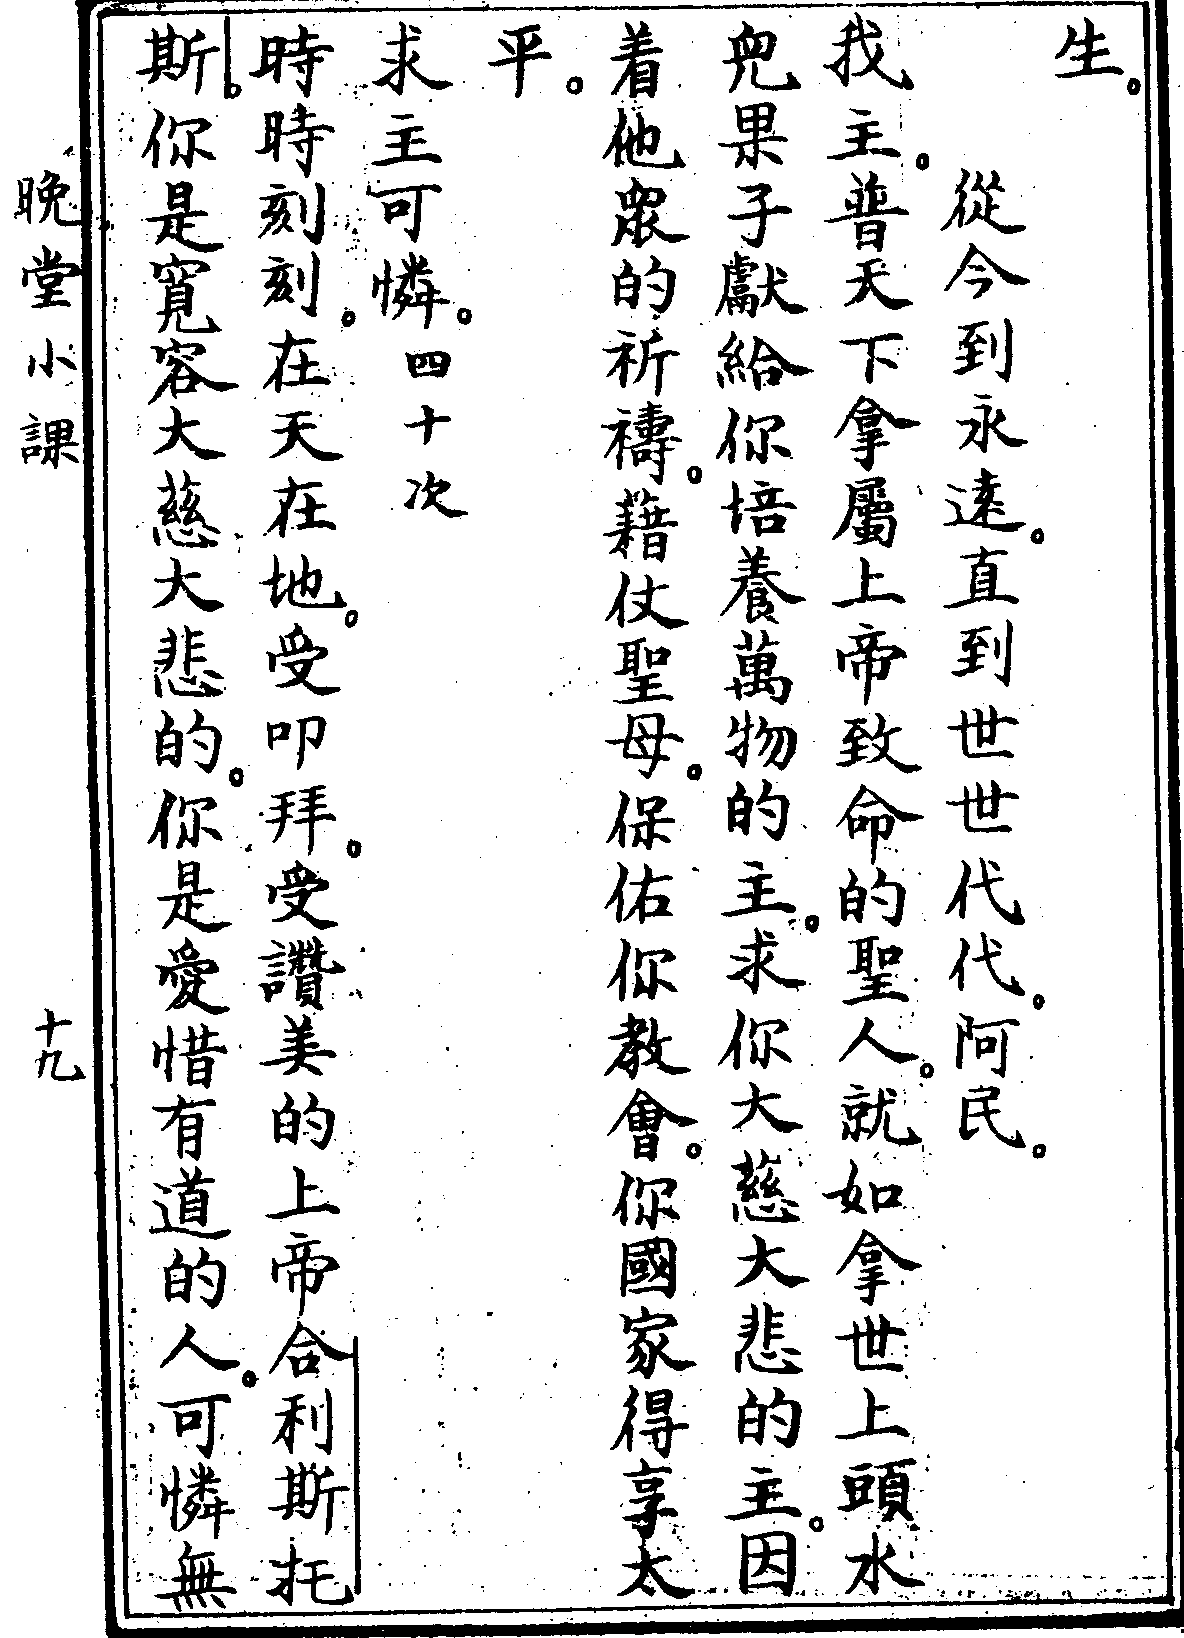 生。
從今到永遠。直到世世代代。阿民。
我主。普天下拿屬上帝致命的聖人。就如拿世上頭水
兜果子獻給你培養萬物的主。求你大慈大悲的主。因
着他眾的祈禱。藉仗聖母。保佑你教會。你國家得享太
平。
求主可憐。四十次
時時刻刻。在天在地。受叩拜。受讚美的上帝合利斯托
斯。你是寬容大慈大悲的。你是愛惜有道的人。可憐無
晚堂小課
十九